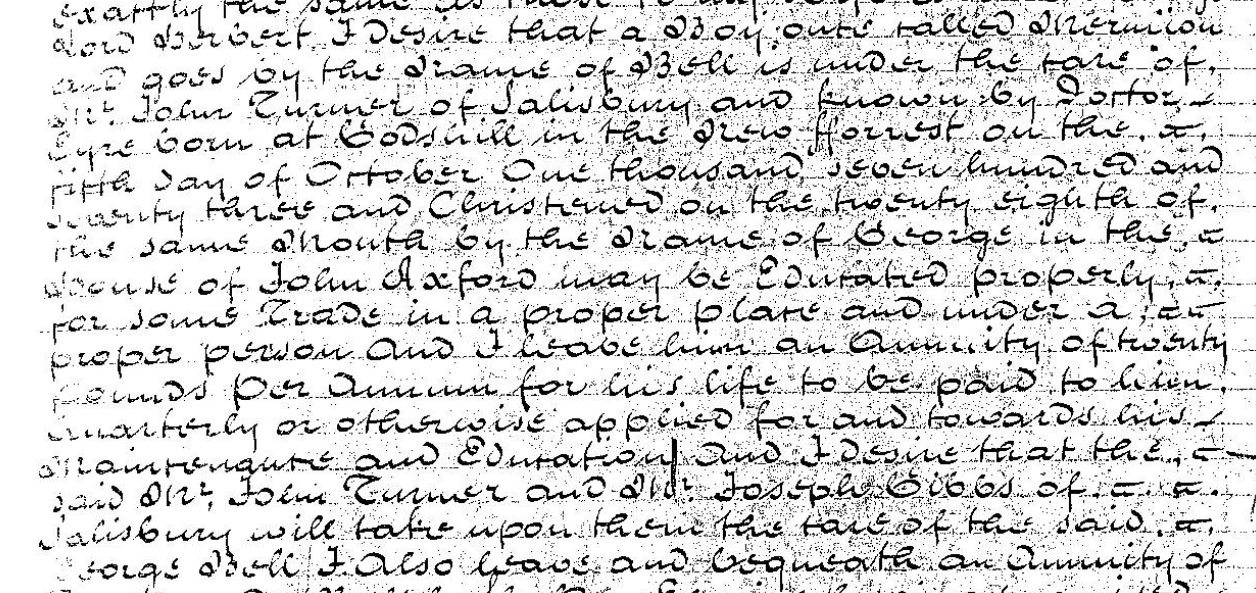 exactly the same as those to my
Lord Herbert I Desire that a Boy once called
and goes by the Name of Bell is under the care of
Mr. John Turner of Salisbury and known by Doctor
Eyre born at Godshill in the New fforrest on the
fifth Day of October One thousand seven hundred and
seventy three and Christened on the twenty eighth of
the same Month by the Name of George in the
House of John Axford may be Educated properly
for some Trade in a proper place and under a
proper person And I leave him an Annuity of twenty
Pounds Per Annum for his life to be paid to him
Quarterly or otherwise applied for and towards his
Maintenance and Education And I desire that the
said Mr. John Turner and Mr. Joseph Gibbs of
Salisbury will take upon them the care of the said
George Bell I Also leave and bequeath an Annuity of